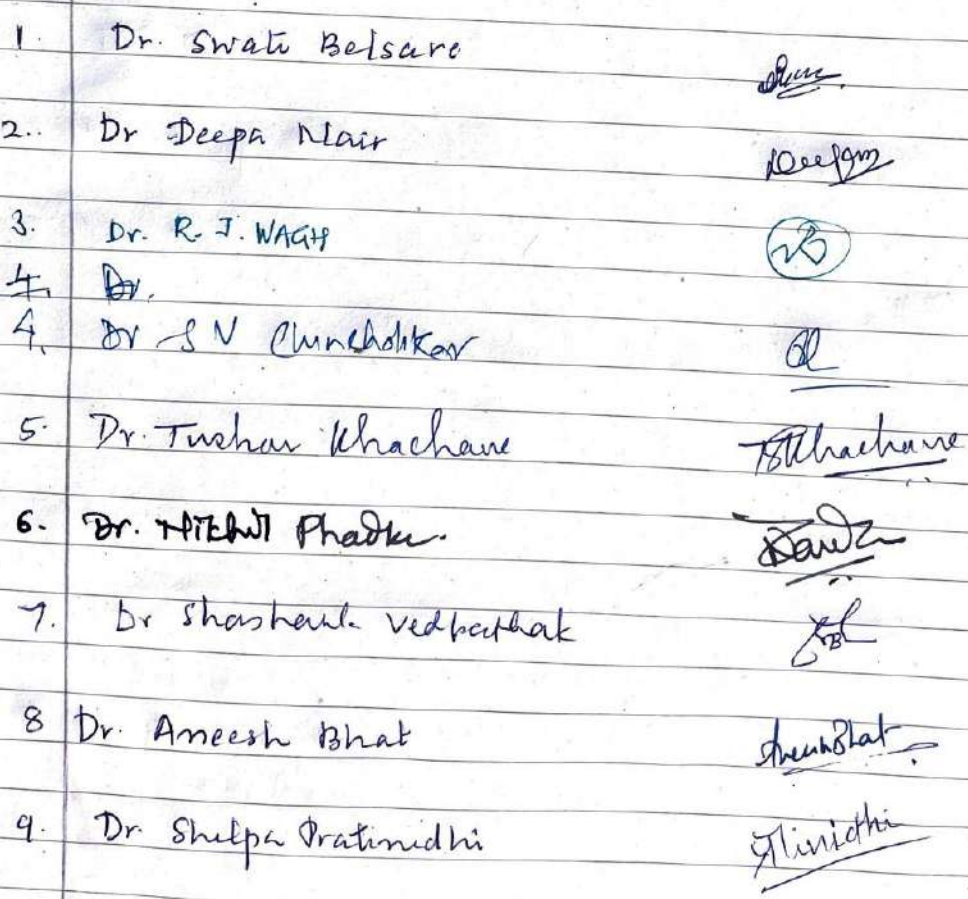 1. Dr. Swati Belsare
2. Dr Deepa Nair
3. Dr. R. J. WAGH
4. Dr.
4. Dr S N Chincholikar
5. Dr. Tushar Khachane TSKhachane
6. Dr. Nikhil Phadke.
7. Dr Shashank Vedpathak
8 Dr. Aneesh Bhat AneeshBhat
9. Dr. Shilpa Pratinidhi